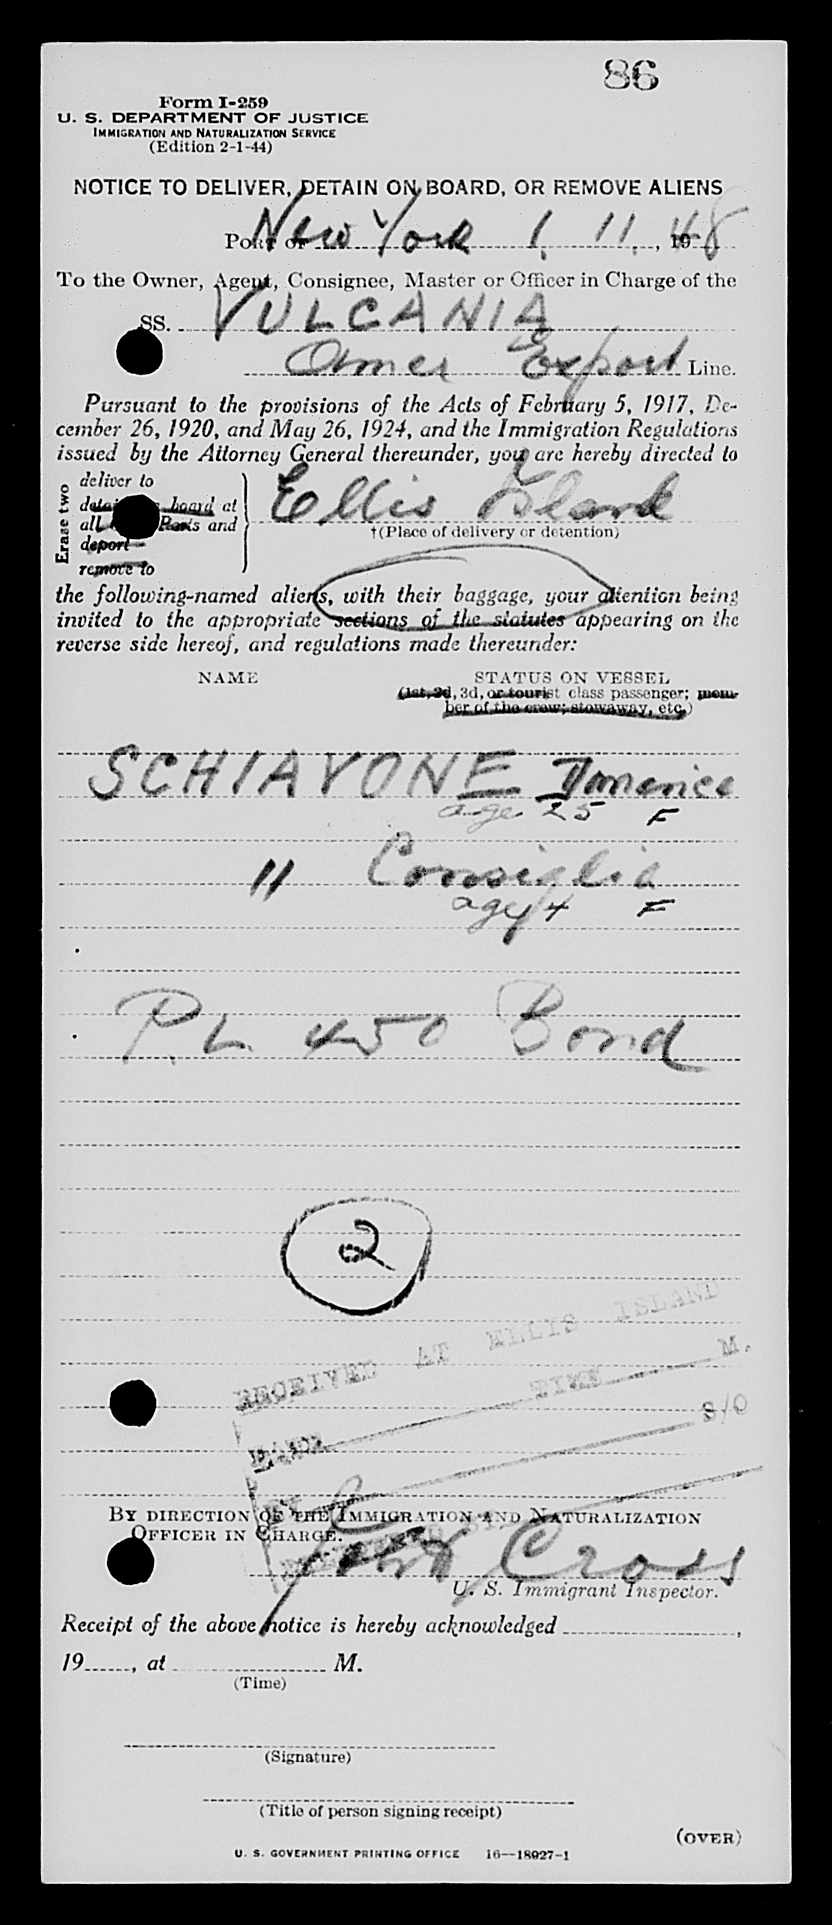 86
Form I-259
U. S. DEPARTMENT OF JUSTICE
IMMIGRATION AND NATURALIZATION SERVICE
(Edition 2-1-44)
NOTICE TO DELIVER, DETAIN ON BOARD, OR REMOVE ALIENS
PORT OF New York 1, 11, 1948
To the Owner, Agent, Consignee, Master or Officer in Charge of the
SS. VULCANIA
Amer Export Line.
Pursuant to the provisions of the Acts of February 5, 1917, De-
cember 26, 1920, and May 26, 1924, and the Immigration Regulations
issued by the Attorney General thereunder, you are hereby directed to
Erase two
deliver to
board at
all Ports and
deport
remove to
Ellis Island
†(Place of delivery or detention)
the following-named aliens, with their baggage, your attention being
invited to the appropriate sections of the statutes appearing on the
reverse side hereof, and regulations made thereunder:
NAME STATUS ON VESSEL
(1st, 2d, 3d, or tourist class passenger; mem-
ber of the crew; stowaway, etc.)
SCHIAVONE Domenica
age 25 F
" Consiglia
age 4 F
P.L. 450 Bond
2
RECEIVED AT ELLIS ISLAND
TIME M.
S/O
BY DIRECTION OF THE IMMIGRATION AND NATURALIZATION
OFFICER IN CHARGE.
Cross
U. S. Immigrant Inspector.
Receipt of the above notice is hereby acknowledged ,
19 , at M.
(Time)
(Signature)
(Title of person signing receipt)
(OVER)
U. S. GOVERNMENT PRINTING OFFICE 16—18927-1